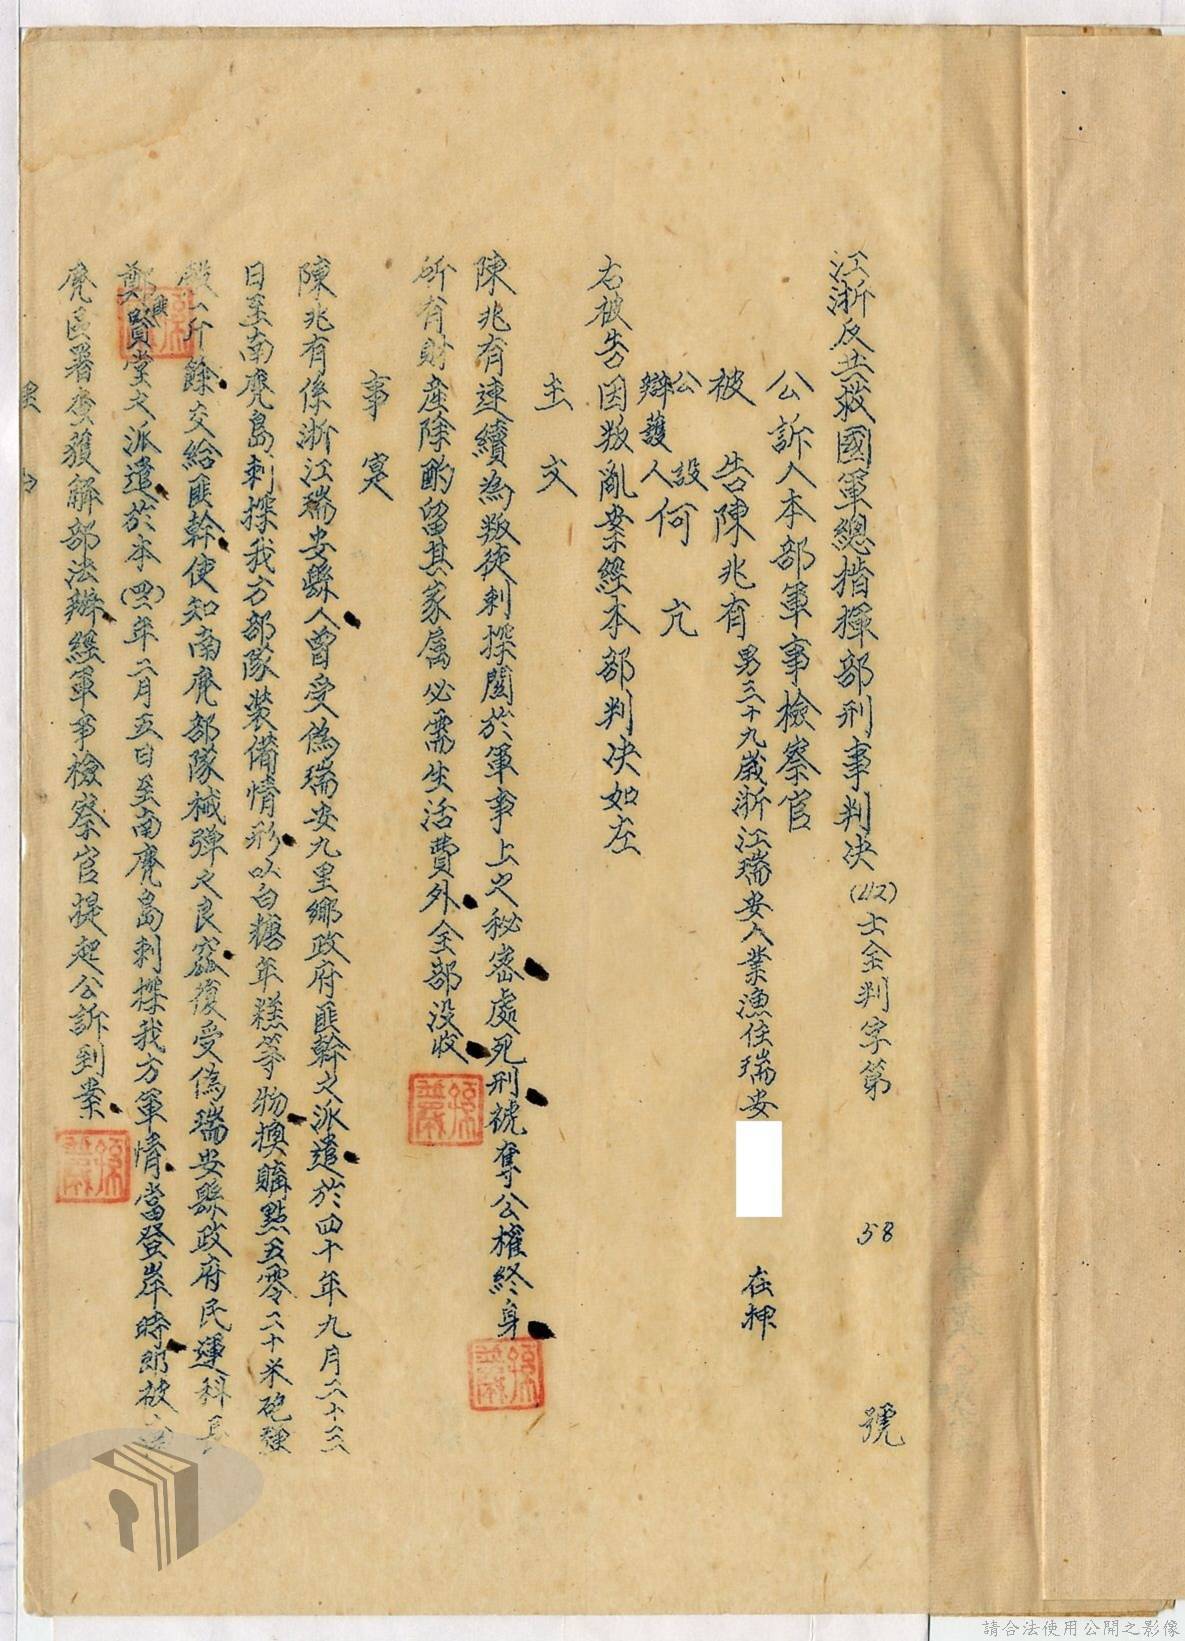 江浙反共救國軍總指揮部刑事判決(42)士金判字第58號
公訴人本部軍事檢察官
被告陳兆有男三十九歲浙江瑞安人業漁住瑞安 在押
公設辯護人何亢
右被告因叛亂案經本部判決如左
主文
陳兆有連續為叛徒刺探關於軍事上之秘密處死刑禠奪公權終身
所有財產除酌留其家屬必需生活費外全部沒收
事實
陳兆有係浙江瑞安縣人曾受偽瑞安九里鄉政府匪幹之派遣於四十年九月二十三
日至南麂島刺探我方部隊裝備情形以白糖年糕等物換購點五零二十米砲彈
殼一斤餘交給匪幹使知南麂部隊械彈之良窳復受偽瑞安縣政府民運科長
鄭賢堂之派遣於本(四二)年二月五日至南麂島刺探我方軍情當登岸時即被
麂區署查獲解部法辦經軍事檢察官提起公訴到案
理由
請合法使用公開之影像